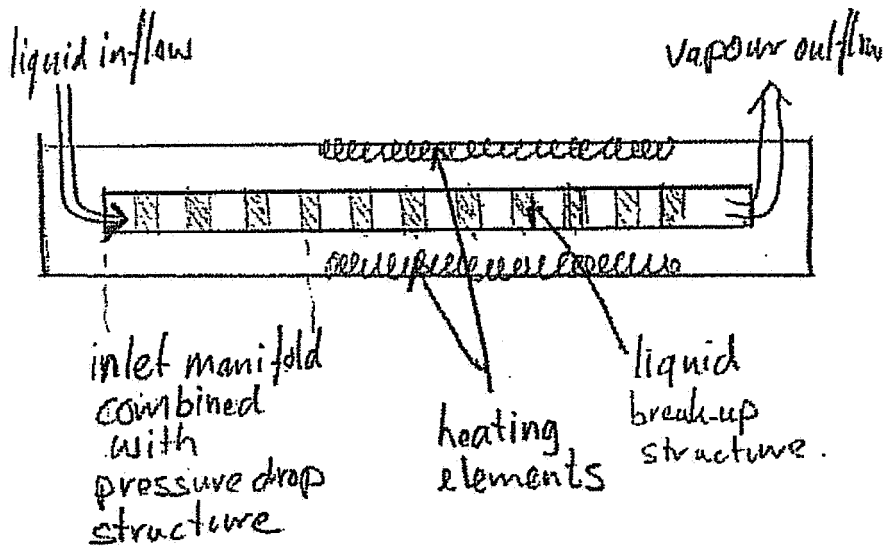 liquid inflow
vapour outflow
inlet manifold
combined
with
pressure drop
structure
heating
elements
liquid
break-up
structure.